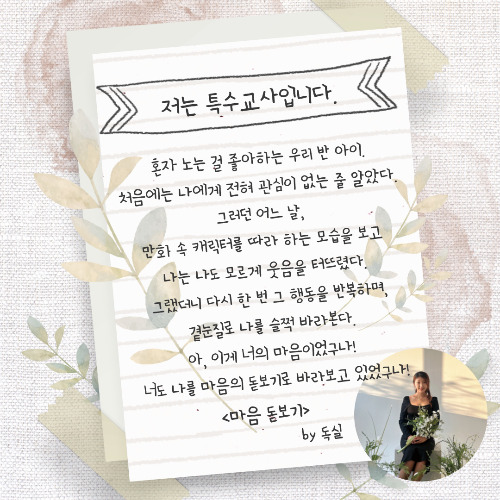 저는 특수교사입니다.
혼자 노는 걸 좋아하는 우리 반 아이.
처음에는 나에게 전혀 관심이 없는 줄 알았다.
그러던 어느 날,
만화 속 캐릭터를 따라 하는 모습을 보고
나는 나도 모르게 웃음을 터뜨렸다.
그랬더니 다시 한 번 그 행동을 반복하며,
곁눈질로 나를 슬쩍 바라본다.
아, 이게 너의 마음이었구나!
너도 나를 마음의 돋보기로 바라보고 있었구나!
<마음 돋보기>
by 독실